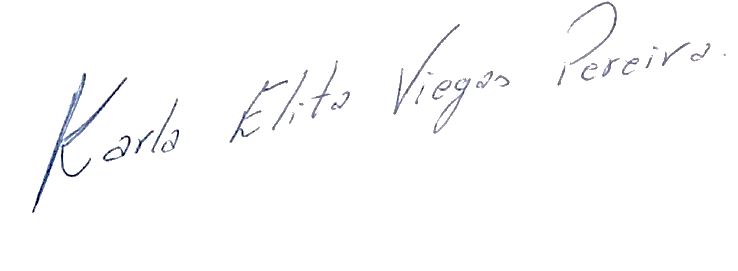 Karla Elita Viegas Pereira.